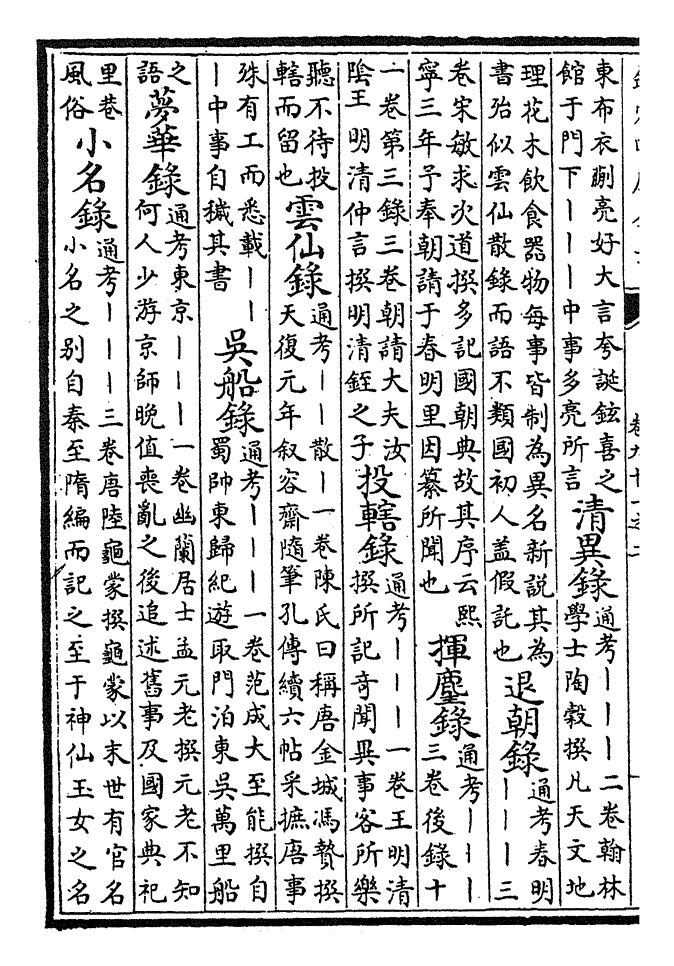 東布衣蒯亮好大言夸誕鉉喜之
館于門下丨丨丨中事多亮所言
清異錄
通考丨丨丨二卷翰林
學士陶穀撰凡天文地
理花木飲食器物每事皆制為異名新說其為
書殆似雲仙散錄而語不類國初人盖假託也
退朝錄
通考春明
丨丨丨三
卷宋敏求次道撰多記國朝典故其序云熙
寧三年予奉朝請于春明里因纂所聞也
揮麈錄
通考丨丨丨
三卷後錄十
一卷第三錄三卷朝請大夫汝
陰王明清仲言撰明清銍之子
投轄錄
通考丨丨丨一卷王明清
撰所記奇聞異事客所樂
聽不待投
轄而留也
雲仙錄
通考丨丨散丨一卷陳氏曰稱唐金城馮贄撰
天復元年叙容齋隨筆孔傳續六帖采摭唐事
殊有工而悉載丨丨
丨中事自穢其書
吳船錄
通考丨丨丨一卷范成大至能撰自
蜀帥東歸紀遊取門泊東吳萬里船
之
語
夢華錄
通考東京丨丨丨一卷幽蘭居士孟元老撰元老不知
何人少游京師晚值喪亂之後追述舊事及國家典祀
里巷
風俗
小名錄
通考丨丨丨三卷唐陸龜蒙撰龜蒙以末世有官名
小名之别自秦至隋編而記之至于神仙玉女之名